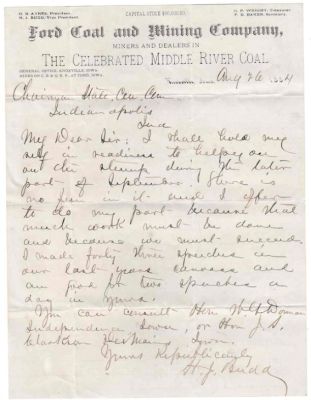 H. S. AYRES, President.
H. J. BUDD, Vice President.
CAPITAL STOCK $50,000.00.
G. P. WRIGHT, Treasurer
F. S. BAKER, Secretary.
Ford Coal and Mining Company,
MINERS AND DEALERS IN
THE CELEBRATED MIDDLE RIVER COAL
GENERAL OFFICE, KNOXVILLE, IOWA.
MINES ON C. R. I. & P. AT FORD, IOWA.
Aug 26 1884
Chairman State Cen Com
Indianapolis
Ind
My Dear Sir; I shall hold my
self in readiness to help you
on the stump during the later
part of September. There is
no fun in it and I offer
to do my part because that
much work must be done
and because we must succeed.
I made forty three speeches in
our last years canvass and
am good for two speeches a
day in yours.
You can consult Hon
Independence Iowa, or Hon J. S.
Clarkson Des Moines Iowa.
Yours Republicanly
H. J. Budd